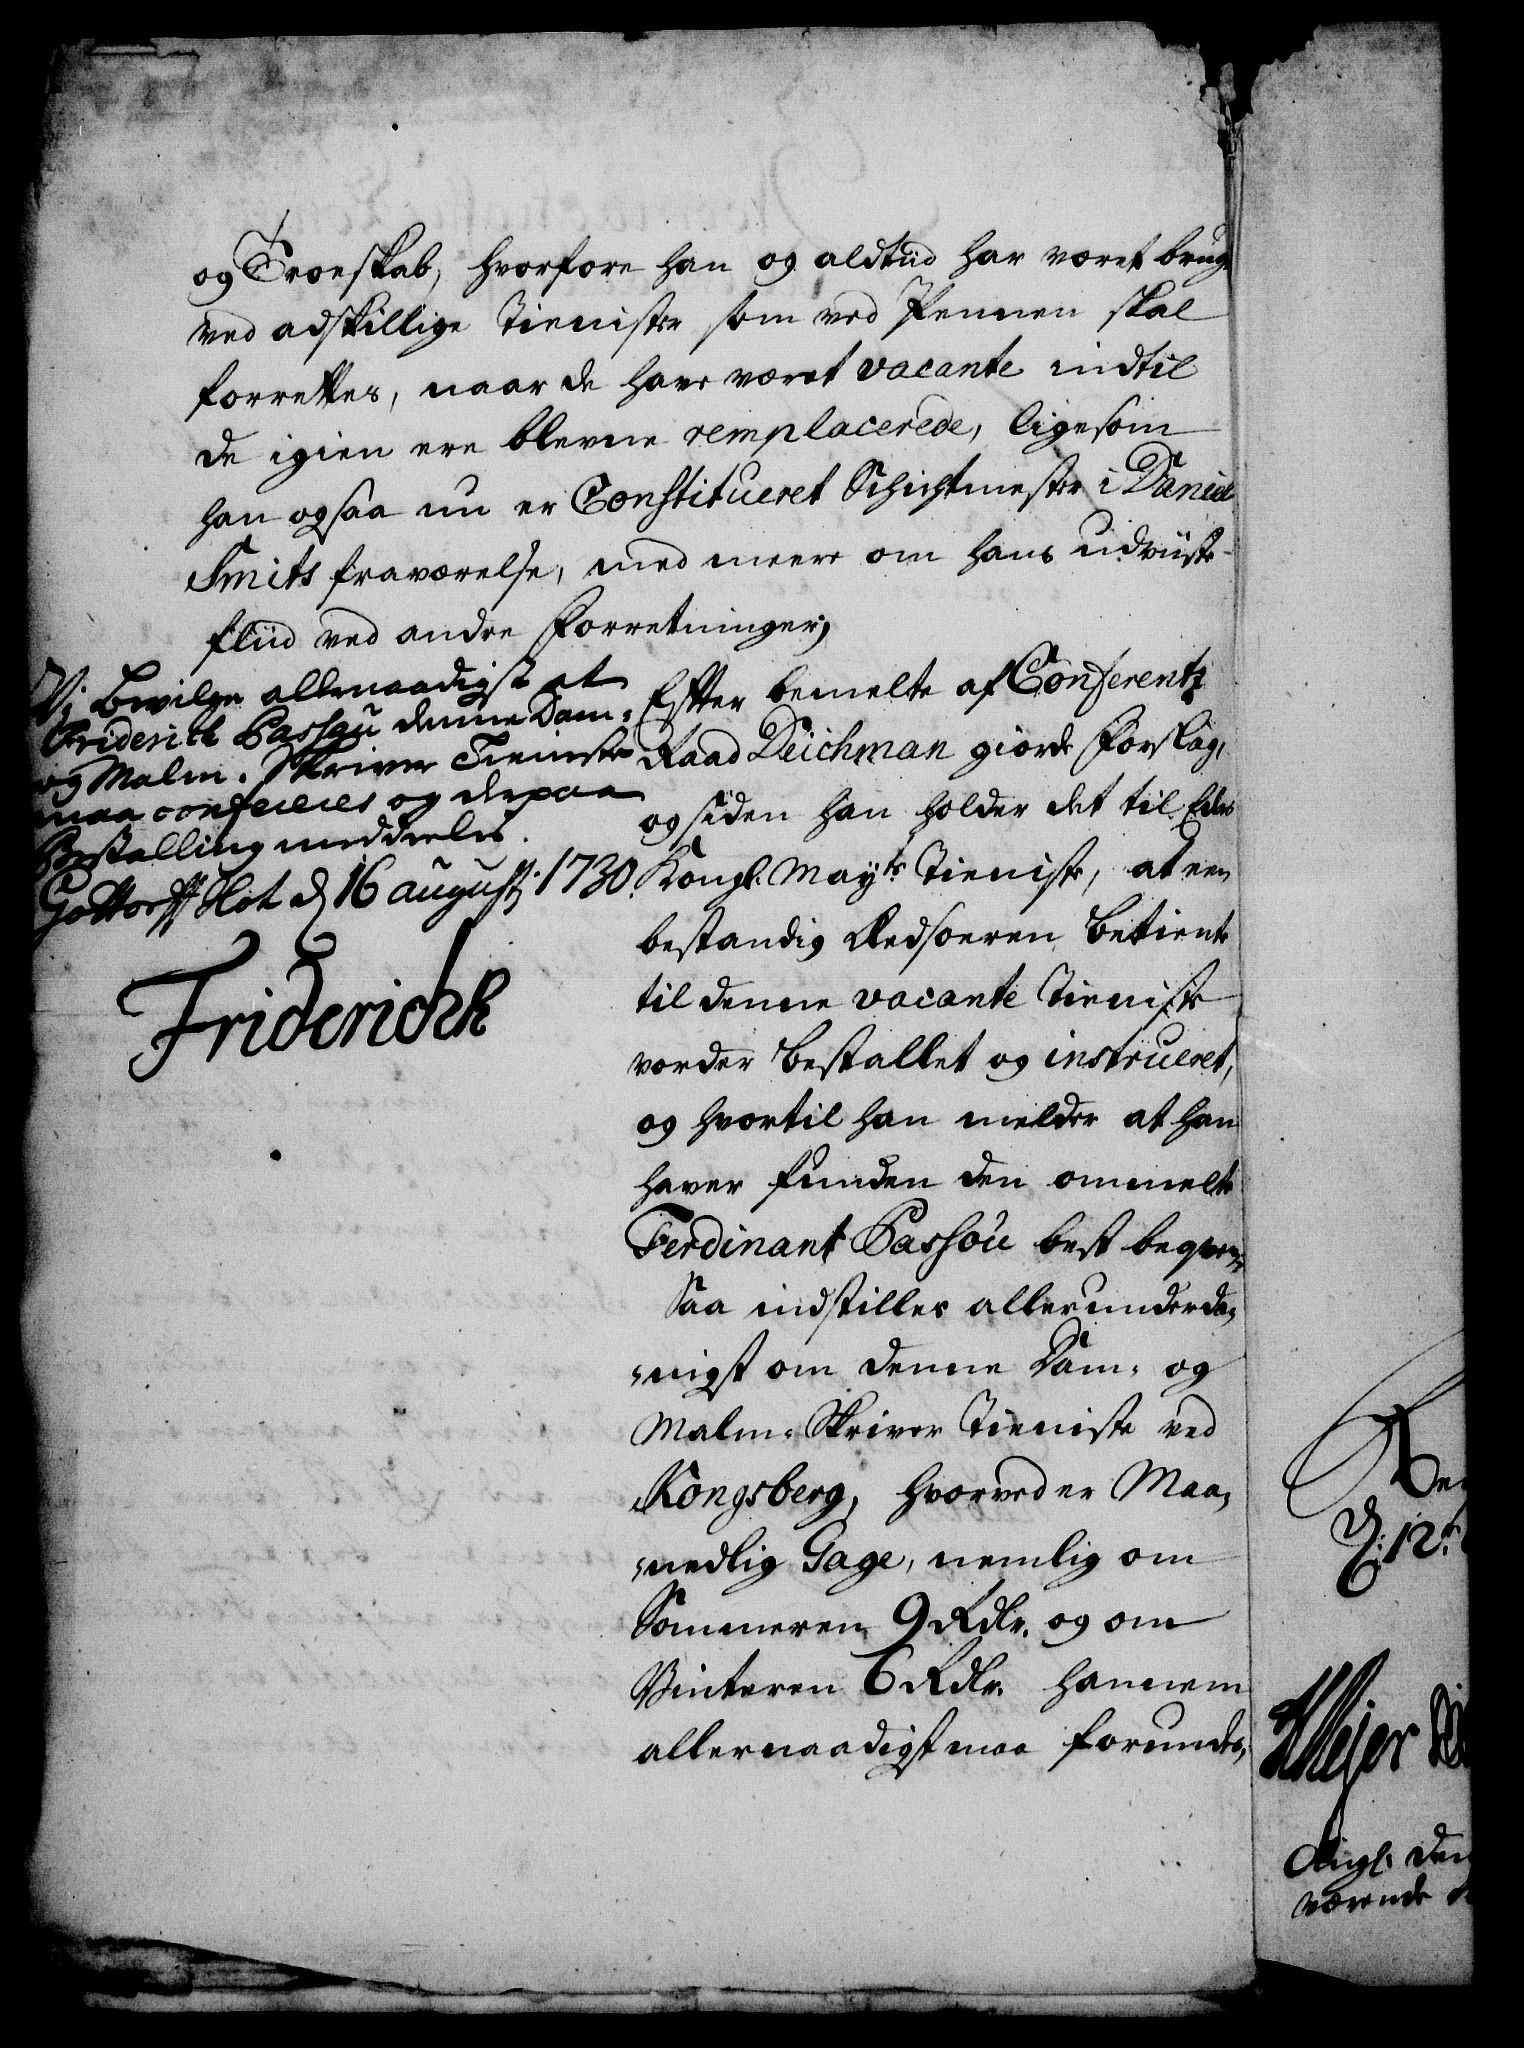 og Troeskab, hvorfore han og aldtiid har været brugt
ved adskillige Tienister som ved Pennen skal
forrettes, naar de have været vacante indtil
de igien ere blevne remplacerede, ligesom
han ogsaa nu er Constitueret Schichtmester i Daniel
Smits fraværelse, med meere om hans udviiste
fliid ved andre Forretninger;
Vi bevilge allernaadigst at
Friderich Passau denne Dam-
og Malm-Skriver Tieniste
maa confereres og derpaa
Bestalling meddeelis.
Gottorff Slot d 16 augusti 1730.
Friderich R
Efter bemelte af Conferentz
Raad Deichman giorde Forslag,
og siden han holder det til Eders
Kongl. Mayts Tieniste, at een
bestandigÆdsoeren Betiente
til denne vacante Tieniste
vorder bestallet og instrueret,
og hvortil han melder at han
haver funden den ommelte
Ferdinant Passou best beqvem;
Saa indstilles allerunderda-
-nigst om denne Dam- og
Malm-Skriver Tieniste ved
Kongsberg, hvorved er Maa-
-nedlig Gage, nemlig om
Sommeren 9 Rdlr. og om
Vinteren 6 Rdlr. hannem
allernaadigst maa forundes,
D. 12te
Meyer
den
værende